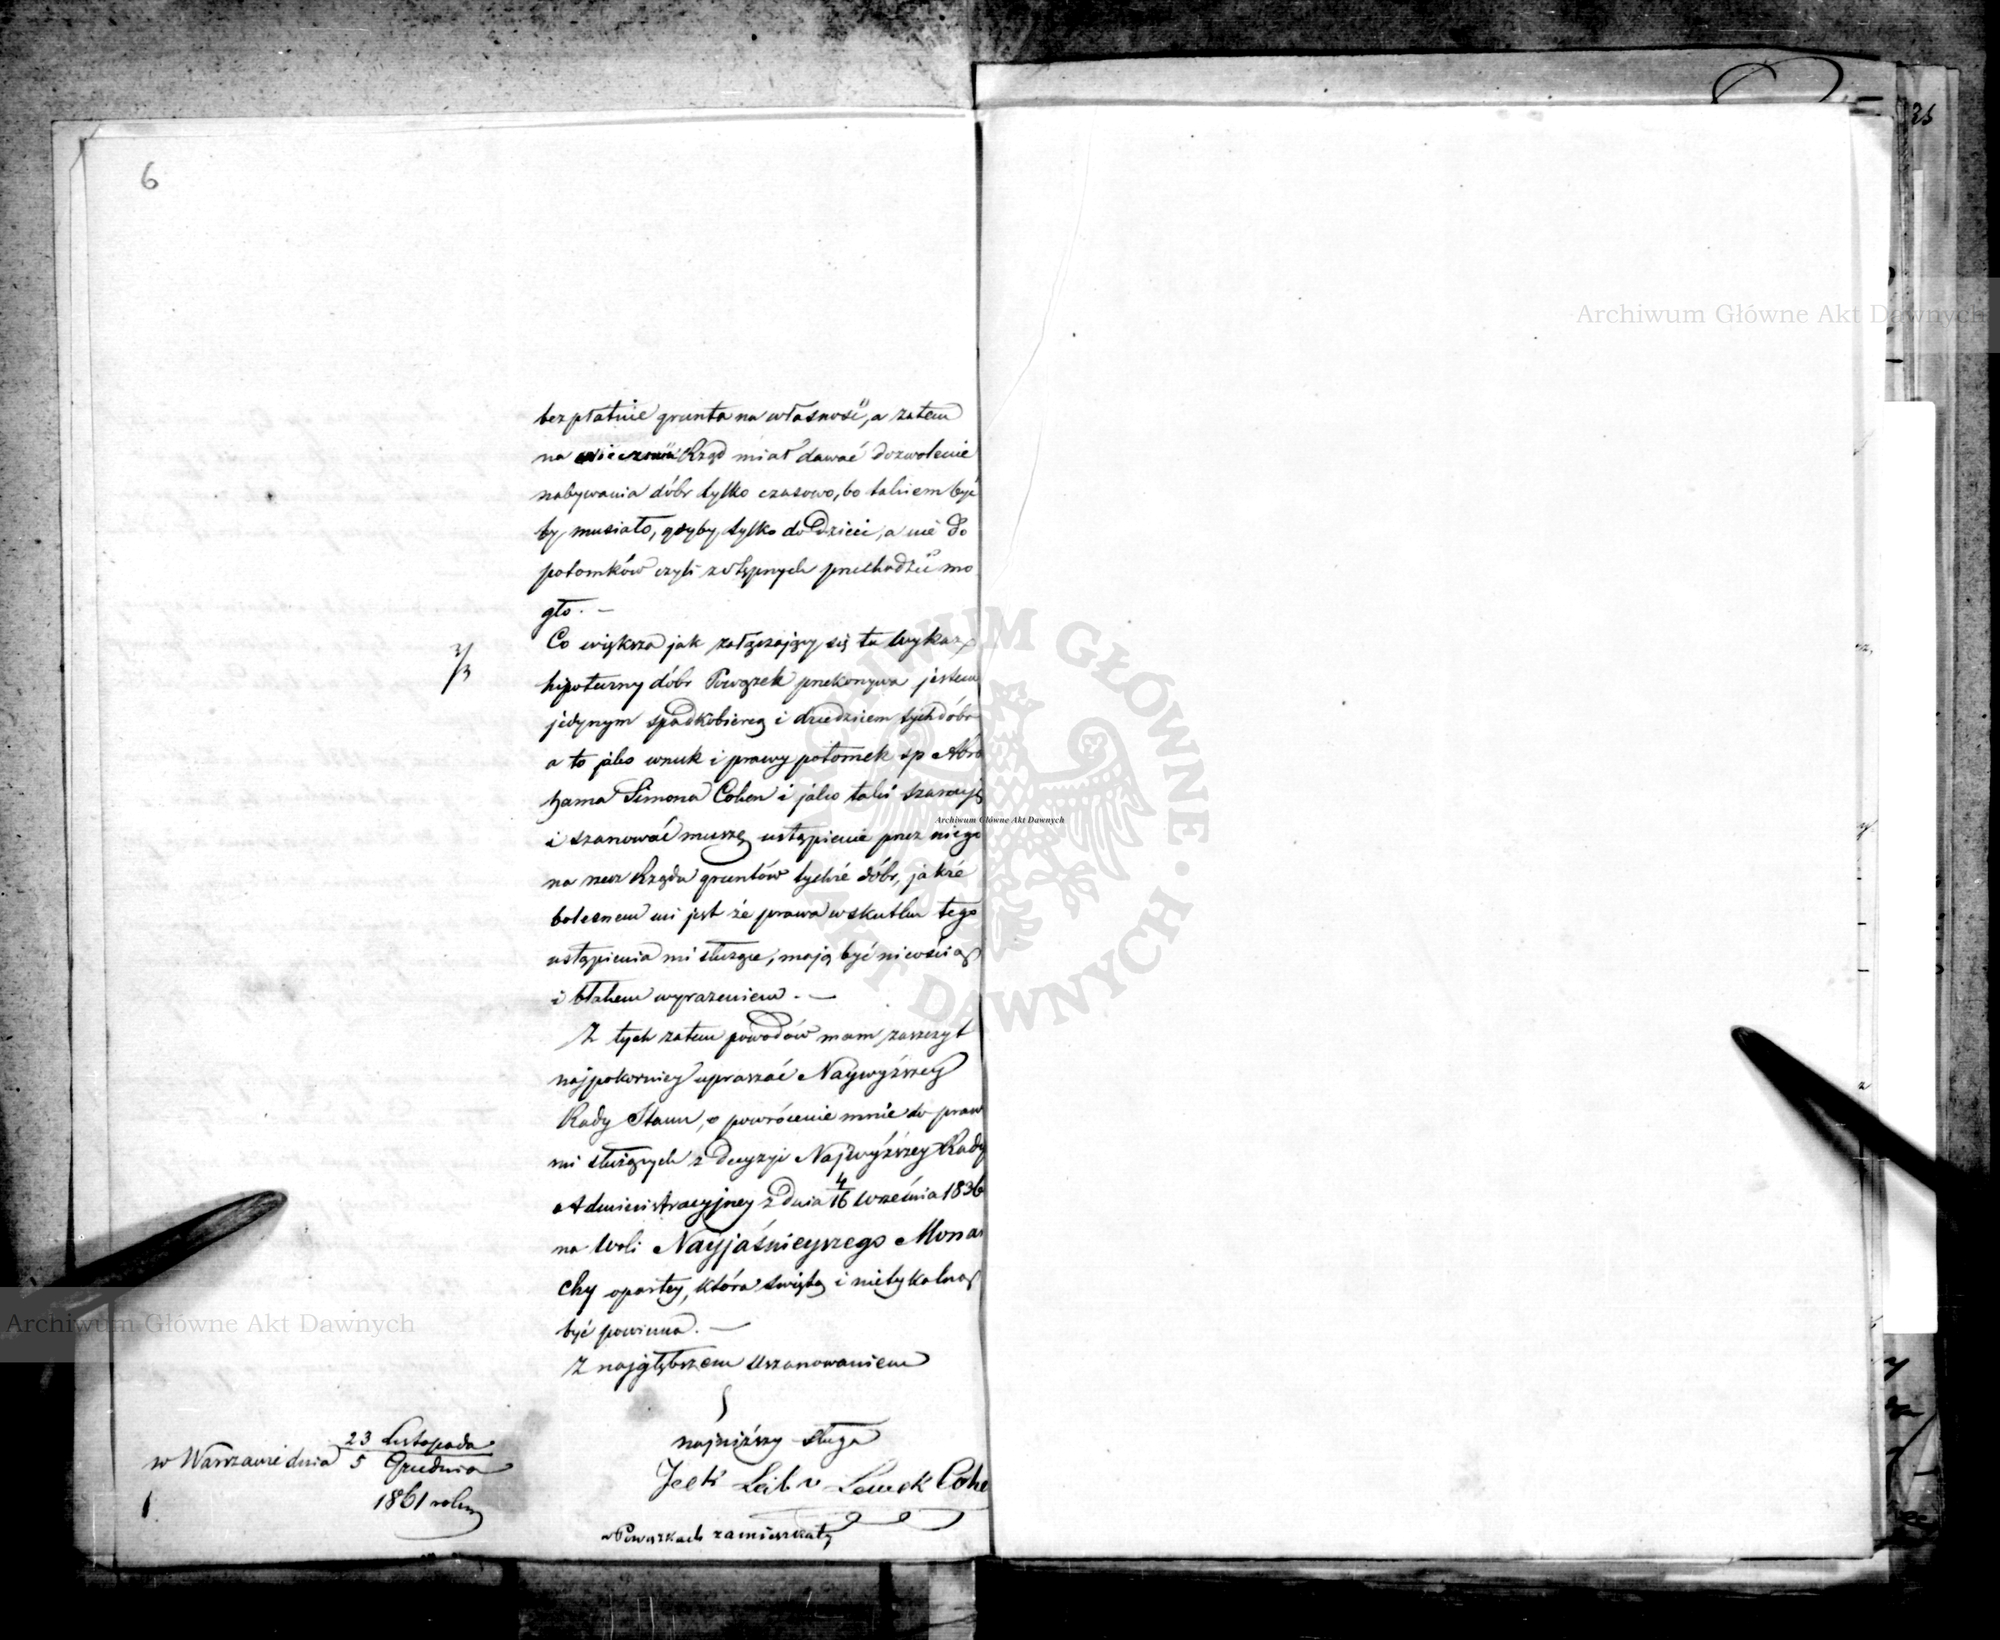 6
bezpłatnie grunta na własność, a zatem
na wieczność Rząd miał dawać dozwolenie
nabywania dóbr tylko czasowo, bo takiem być
by musiało, gdyby tylko do Dzieci, a nie do
potomków czyli zstępnych przechodzić mo
gło. —
Co większa jak załączający się tu wykaz
hipoteczny dóbr Powązek przekonywa jestem
jedynym spadkobiercą i dziedzicem tych dóbr
a to jako wnuk i prawy potomek sp Abra
hama Simona Cohen i jako taki szanuję
i szanować muszę ustąpienie przez niego
na rzecz Rządu gruntów tychże dóbr, jakże
bolesnem mi jest że prawa wskutku tego
ustąpienia mi służące, mają być nicością
i błahem wyrazeniem. —
Z tych zatem powodów mam zaszczyt
najpokorniey upraszać Naywyższey
Rady Stanu, o powrócenie mnie do praw
mi służących z decyzyi Najwyższey Rady
Administracyjney z dnia 4/16 Września 1836
na Woli Nayjaśnieyszego Monar
chy opartey, która świętą i nietykalną
być powinna. —
Z najgłębszem uszanowaniem
najniższy sługa
w Warszawie dnia 23 Listopada
5 Grudnia
1861 roku
Leib v Lewek Cohe
w Powązkach zamieszkały
36
Archiwum Główne Akt Dawnych
Archiwum Główne Akt Dawnych
Archiwum Główne Akt Dawnych
ARCHIWUM GŁÓWNE AKT DAWNYCH